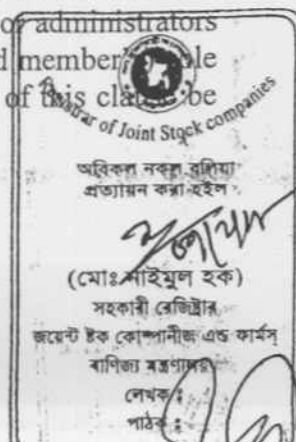 or administrators
d member
of this clause be
Registrar of Joint Stock companies
অবিকল নকল বলিয়া
প্রত্যায়ন করা হইল
(মোঃ নাইমুল হক)
সহকারী রেজিষ্ট্রার
জয়েন্ট ষ্টক কোম্পানীজ এন্ড ফার্মস্
বাণিজ্য মন্ত্রণালয়
লেখক :
পাঠক :